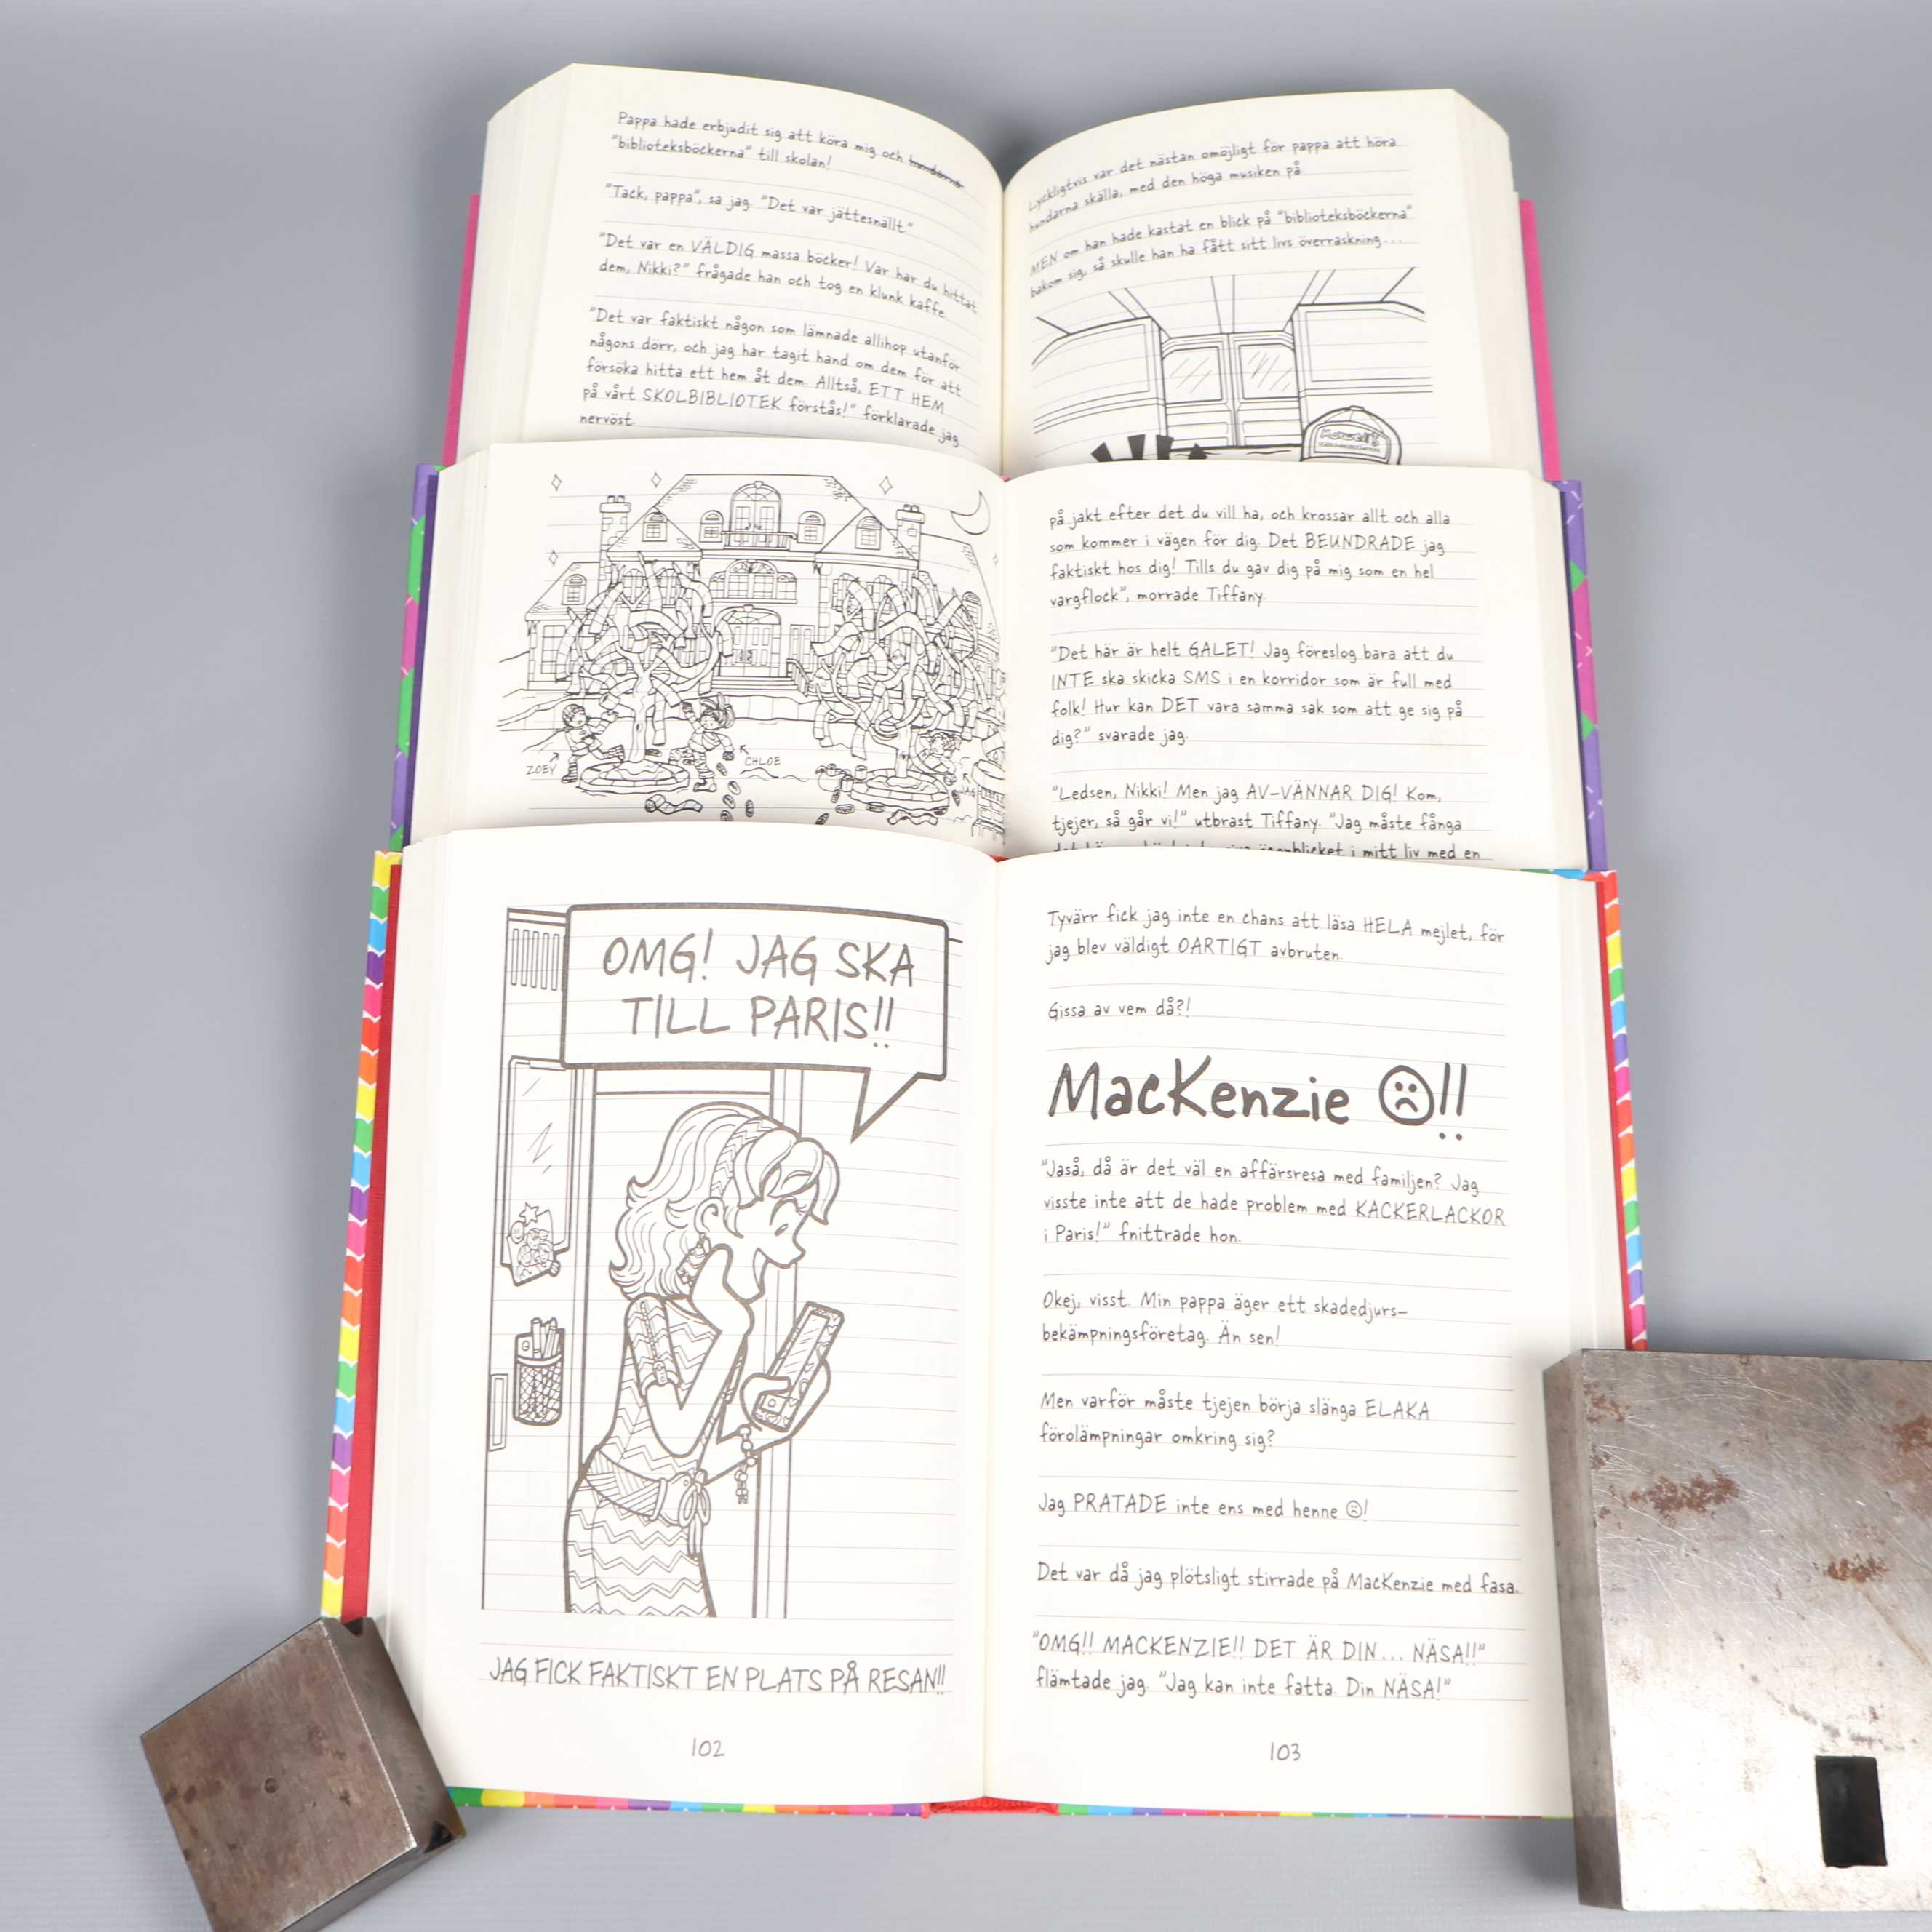 Pappa hade erbjudit sig att köra mig och hundarna
"biblioteksböckerna" till skolan!
"Tack, pappa", sa jag. "Det var jättesnällt."
"Det var en VÄLDIG massa böcker! Var har du hittat
dem, Nikki?" frågade han och tog en klunk kaffe.
"Det var faktiskt någon som lämnade allihop utanför
någons dörr, och jag har tagit hand om dem för att
försöka hitta ett hem åt dem. Alltså, ETT HEM
på vårt SKOLBIBLIOTEK förstås!" förklarade jag
nervöst.
Lyckligtvis var det nästan omöjligt för pappa att höra
hundarna skälla, med den höga musiken på.
MEN om han hade kastat en blick på "biblioteksböckerna"
bakom sig, så skulle han ha fått sitt livs överraskning...
ZOEY
CHLOE
JAG
på jakt efter det du vill ha, och krossar allt och alla
som kommer i vägen för dig. Det BEUNDRADE jag
faktiskt hos dig! Tills du gav dig på mig som en hel
vargflock", morrade Tiffany.
"Det här är helt GALET! Jag föreslog bara att du
INTE ska skicka SMS i en korridor som är full med
folk! Hur kan DET vara samma sak som att ge sig på
dig?" svarade jag.
"Ledsen, Nikki! Men jag AV-VÄNNAR DIG! Kom,
tjejer, så går vi!" utbrast Tiffany. "Jag måste fånga
ögonblicket i mitt liv med en
OMG! JAG SKA
TILL PARIS!!
JAG FICK FAKTISKT EN PLATS PÅ RESAN!!
102
Tyvärr fick jag inte en chans att läsa HELA mejlet, för
jag blev väldigt OARTIGT avbruten.
Gissa av vem då?!
MacKenzie ☹!!
"Jaså, då är det väl en affärsresa med familjen? Jag
visste inte att de hade problem med KACKERLACKOR
i Paris!" fnittrade hon.
Okej, visst. Min pappa äger ett skadedjurs-
bekämpningsföretag. Än sen!
Men varför måste tjejen börja slänga ELAKA
förolämpningar omkring sig?
Jag PRATADE inte ens med henne ☹!
Det var då jag plötsligt stirrade på MacKenzie med fasa.
"OMG!! MACKENZIE!! DET ÄR DIN... NÄSA!!"
flämtade jag. "Jag kan inte fatta. Din NÄSA!"
103